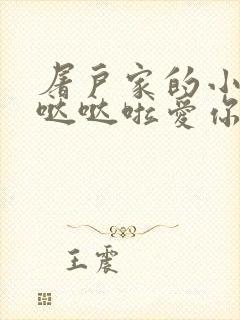 屠户家的小
哒哒啦爱你
王震